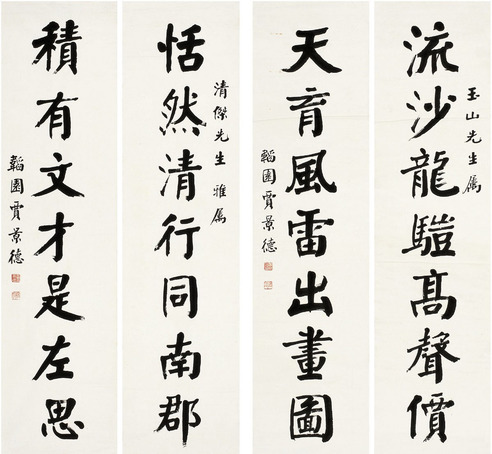 流沙龍高聲價
玉山先生属
天育風雷出畫圖
韜園賈景德
恬然清行同南郡
清傑先生雅属
積有文才是左思
韜園賈景德